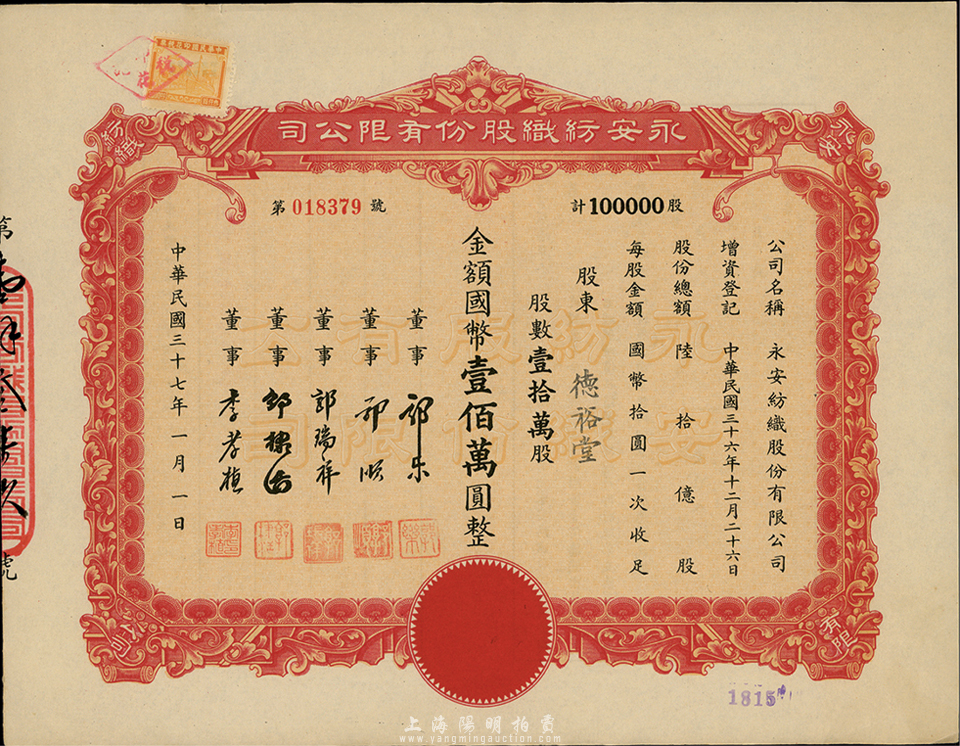 永安紡織股份有限公司
永安
紡織
有限
公司
計100000股
第 018379 號
公司名稱 永安紡織股份有限公司
增資登記 中華民國三十六年十二月二十六日
股份總額 陸拾億股
每股金額 國幣拾圓一次收足
股東 德裕堂
股數壹拾萬股
金額國幣壹佰萬圓整
董事 郭樂
董事 郭順
董事 郭瑞祥
董事 郭棣活
董事 李孝植
中華民國三十七年一月一日
永紡股有公
安織份限司
中華民國印花稅票
第
號
1815
上海陽明拍賣
www.yangmingauction.com